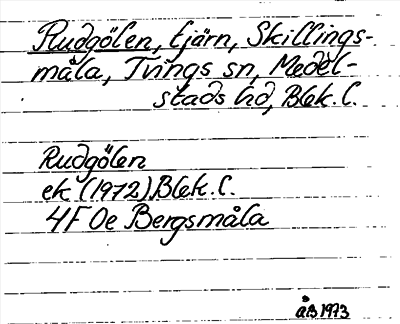 Rudgölen, tjärn, Skillings-
måla, Tvings sn, Medel-
stads hd, Blek. l.
Rudgölen
ek (1972) Blek. l.
4F 0e Bergsmåla
åB 1973